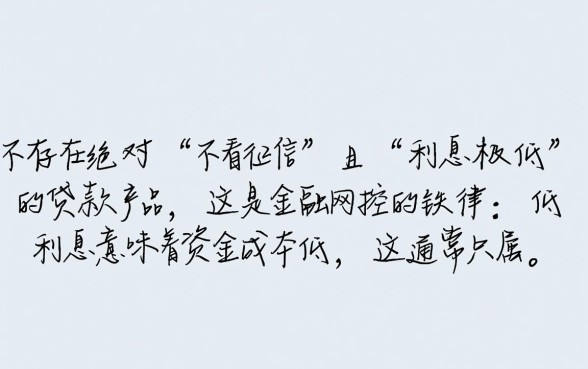 不存在绝对“不看征信”且“利息极低”
的贷款产品，这是金融网控的铁律：低
利息意味着资金成本低，这通常只属。